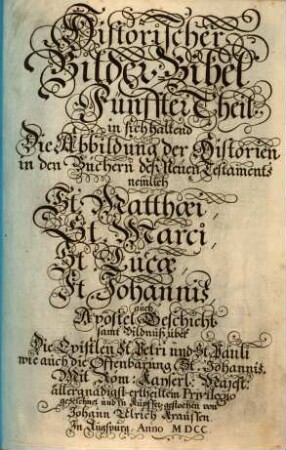 Historischer
Bilder Bibel
Fünffter Theil
in sich haltend
Die Abbildung der Historien
in den Büchern deß Neuen Testaments
nemlich
St. Matthæi,
St. Marci,
St. Lucæ,
St. Johannis,
auch
Apostel-Geschicht
samt Bildnüß über
Die Epistlen St. Petri und St. Pauli
wie auch die Offenbarung St. Johannis.
Mit Röm: Kayserl: Mayest:
allergnädigst ertheiltem Privilegio
gezeichnet und in Kupffer gestochen von
Johann Ulrich Kraussen.
In Augspurg. Anno MDCC.